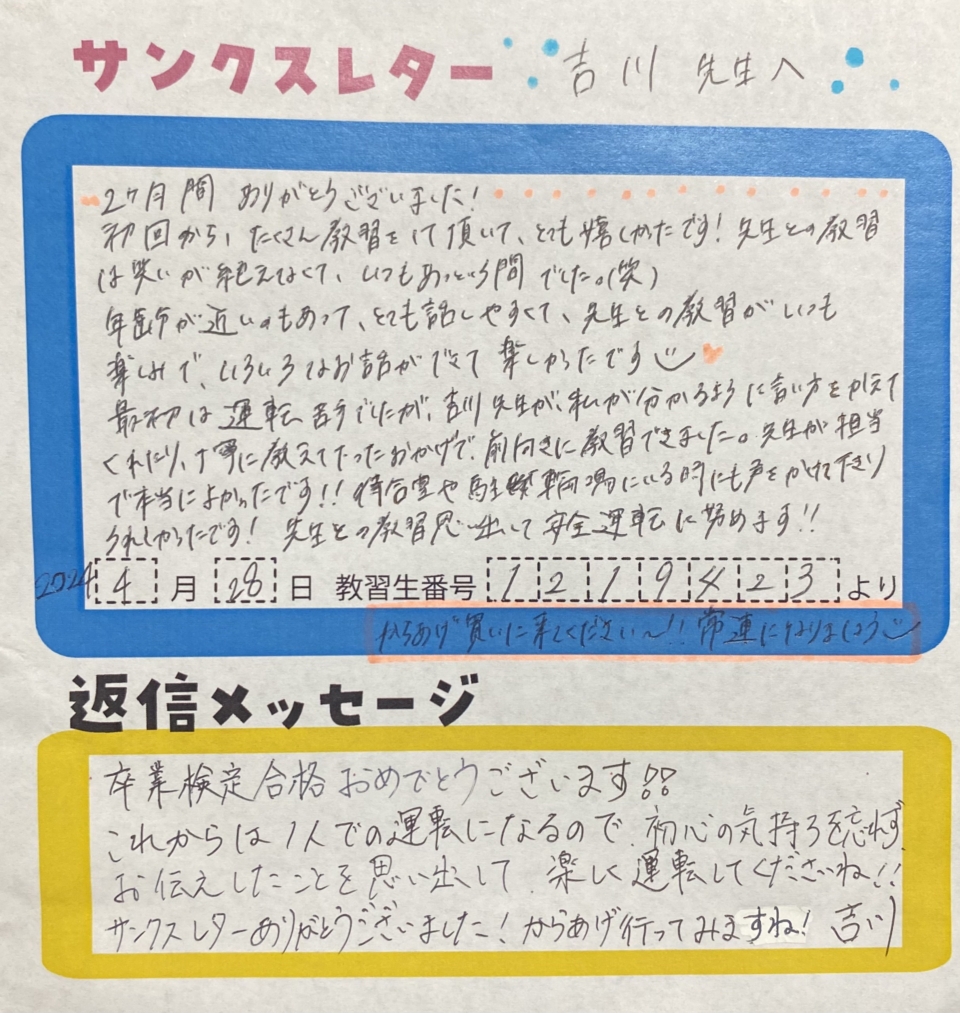 サンクスレター 吉川 先生へ
2ヶ月間 ありがとうございました!
初回から、たくさん教習をして頂いて、とても嬉しかったです! 先生との教習
は笑いが絶えなくて、いつもあっという間でした。(笑)
年齢が近いのもあって、とても話しやすくて、先生との教習がいつも
楽しみで、いろいろなお話ができて楽しかったです
最初は運転苦手でしたが、吉川先生が、私が分かるように言い方をかえて
くれたり、丁寧に教えて下さったおかげで、前向きに教習できました。先生が担当
で本当によかったです!! 待合室や駐輪場にいる時にも声をかけて下さり
うれしかったです! 先生との教習思い出して安全運転に努めます!!
2024 4月28日 教習生番号 1219423より
からあげ買いに来てください〜!! 常連になりましょう
返信メッセージ
卒業検定合格おめでとうございます!!
これからは1人での運転になるので、初心の気持ちを忘れず、
お伝えしたことを思い出して、楽しく運転してくださいね!!
サンクスレターありがとうございました! からあげ行ってみますね! 吉川